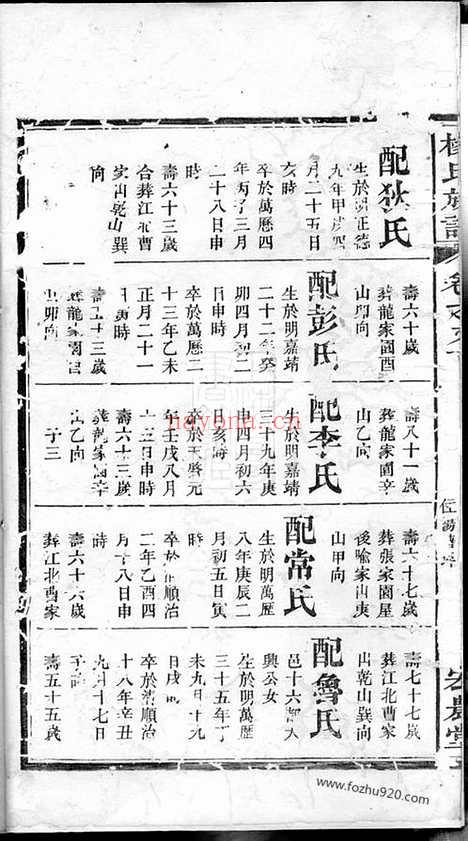 楊氏族譜
宏農堂
配狄氏
生於明正德
九年甲戌四
月二十五日
亥時
卒於萬曆四
年丙子三月
二十八日申
時
壽六十三歲
合葬江北曹
家山乾山巽
向
壽六十歲
葬龍家園酉
山卯向
配彭氏
生於明嘉靖
二十二年癸
卯四月初二
日申時
卒於萬曆二
十三年乙未
正月二十一
日 時
壽五十三歲
葬龍家園酉
山卯向
壽八十一歲
葬龍家園辛
山乙向
配李氏
生於明嘉靖
三十九年庚
申四月初六
日亥時
卒於天啓元
年壬戌八月
十 日申時
壽六十三歲
葬龍家園辛
山乙向
子三
壽六十七歲
葬張家園屋
後喻家山庚
山甲向
配常氏
生於明萬歷
八年庚辰二
月初五日寅
時
卒於清順治
二年乙酉四
月十八日申
時
壽六十六歲
葬江北曹家
壽七十七歲
葬江北曹家
山乾山巽向
配魯氏
邑十六都大
興公女
生於明萬歷
三十五年丁
未九月十九
日戌時
卒於清順治
十八年辛丑
九月十七日
子時
壽五十五歲
nayona.cn
www.fozhu920.com